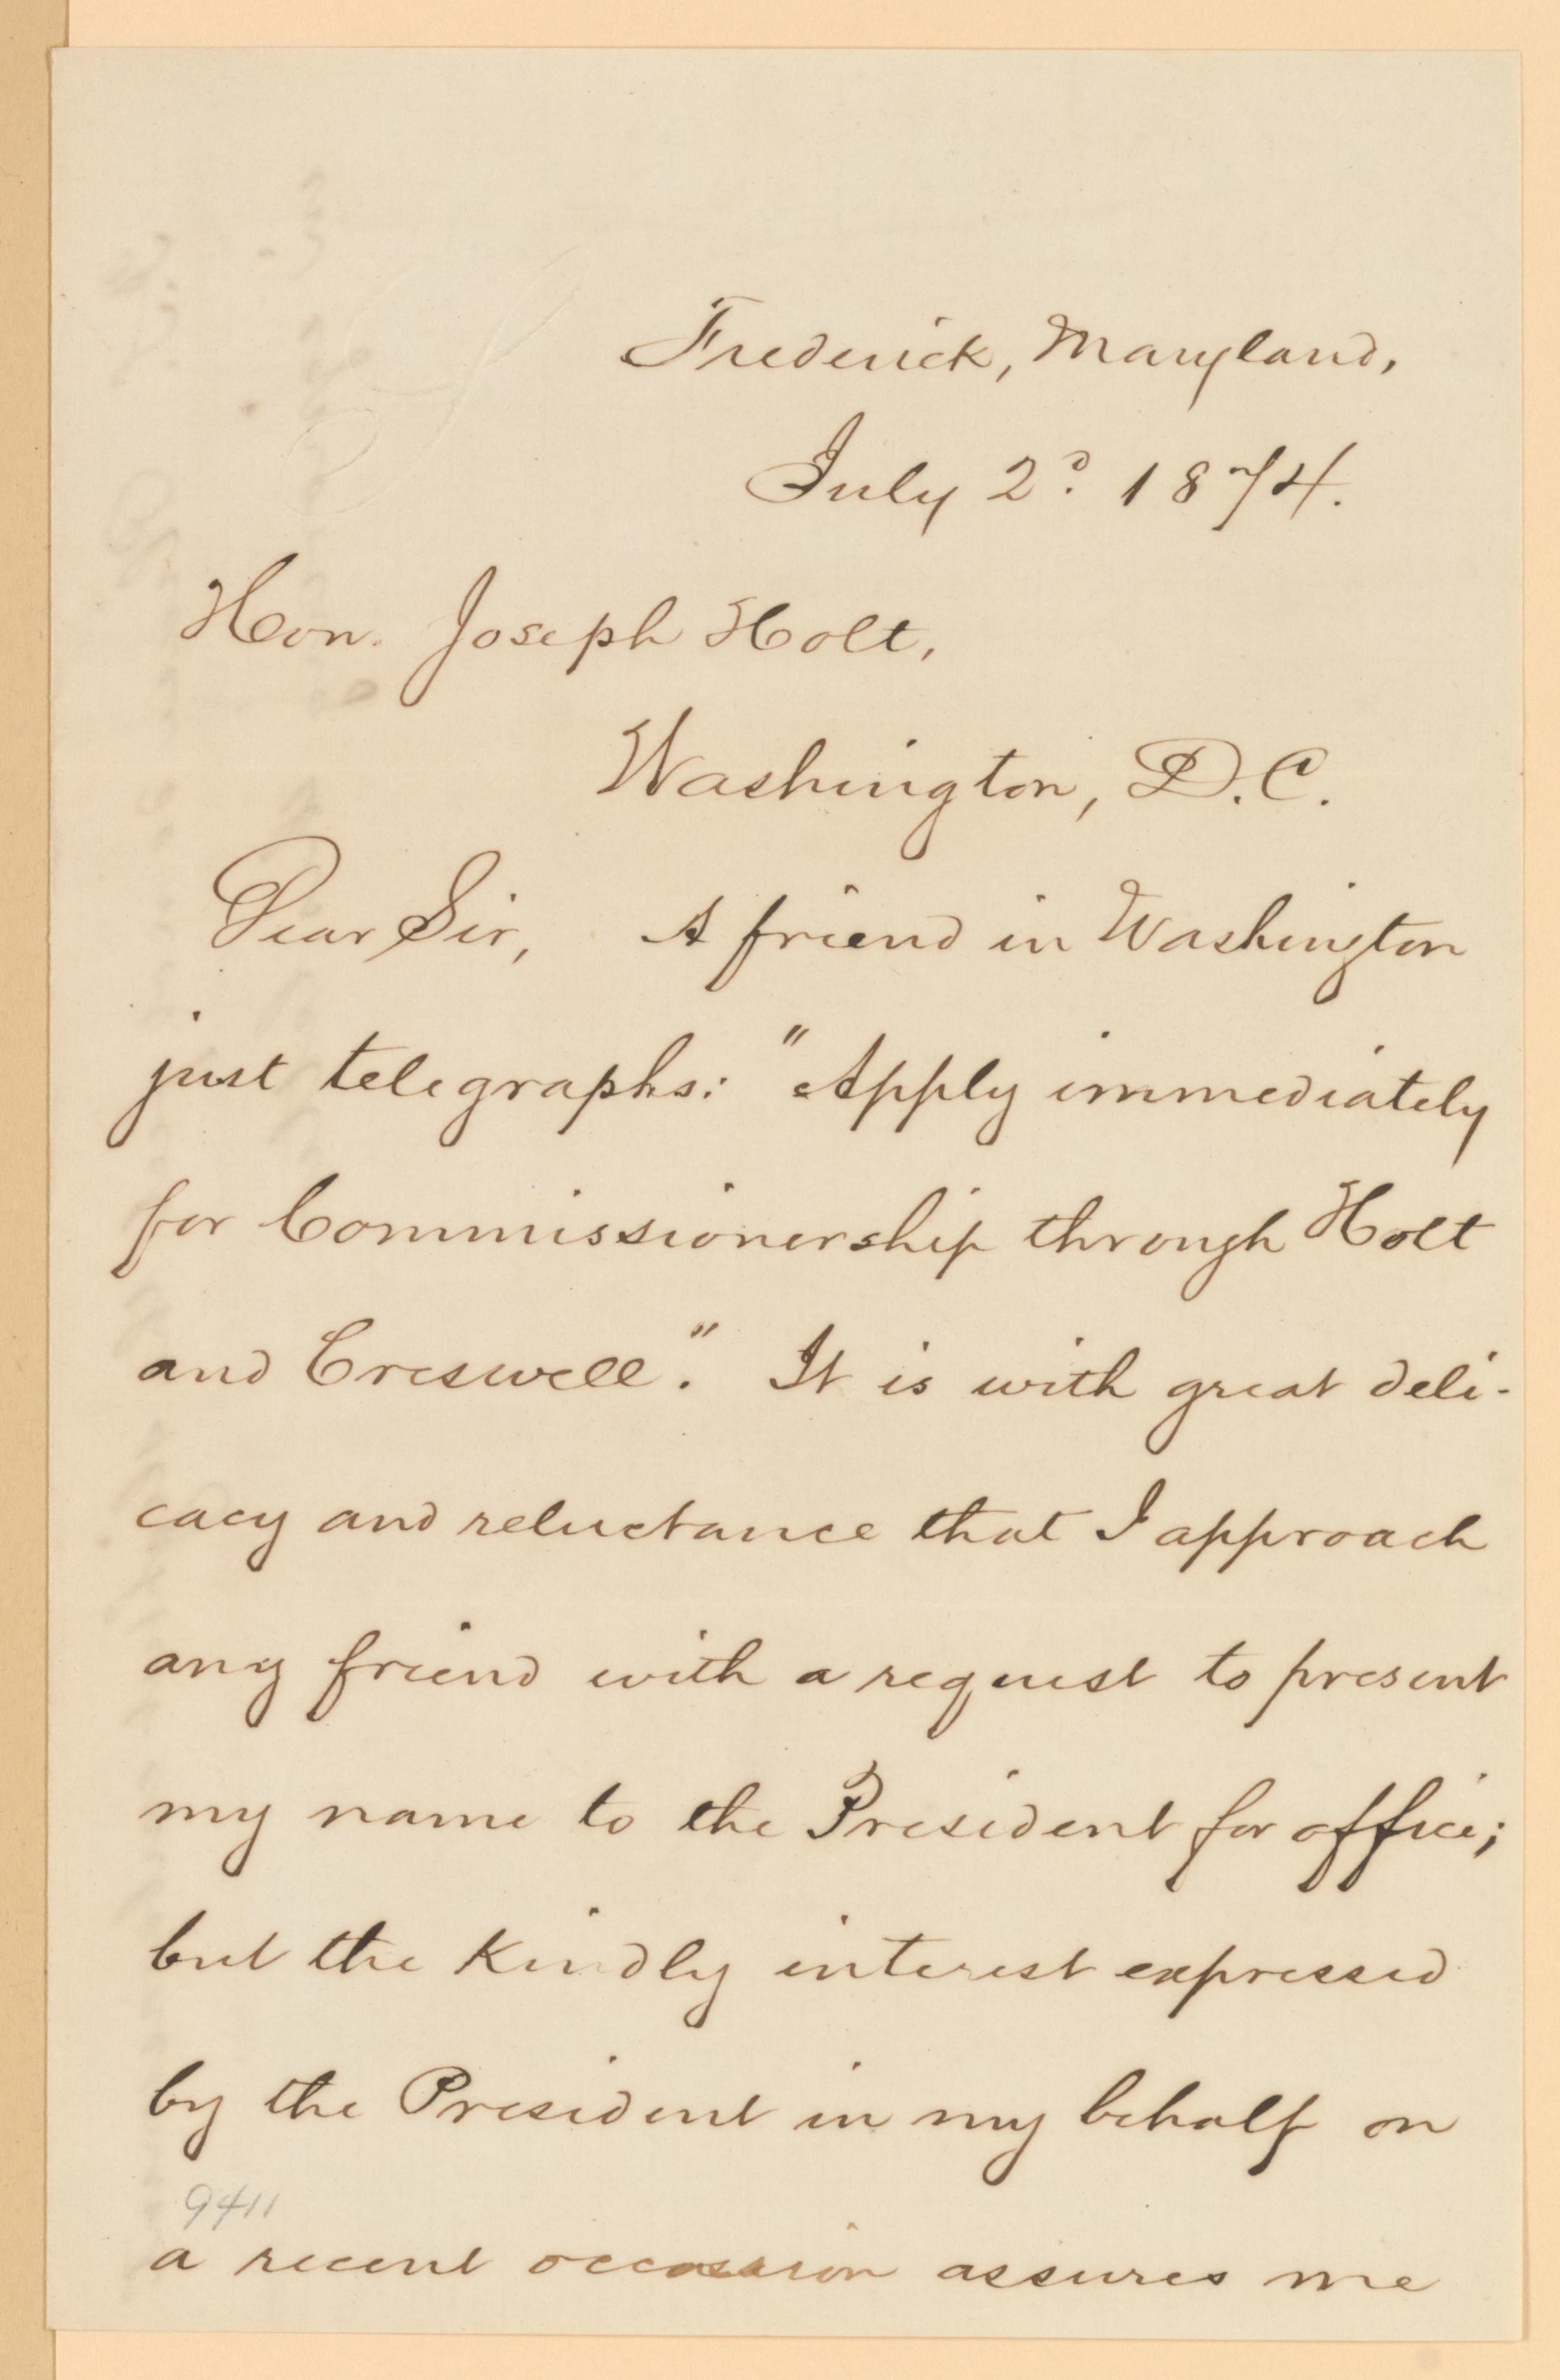 Frederick, Maryland,
July 2d. 1874.
Hon. Joseph Holt,
Washington, D.C.
Dear Sir, A friend in Washington
just telegraphs: "Apply immediately
for Commissionership through Holt
and Creswell." It is with great deli-
cacy and reluctance that I approach
any friend with a request to present
my name to the President for office;
but the kindly interest expressed
by the President in my behalf on
9411
a recent occasion assures me